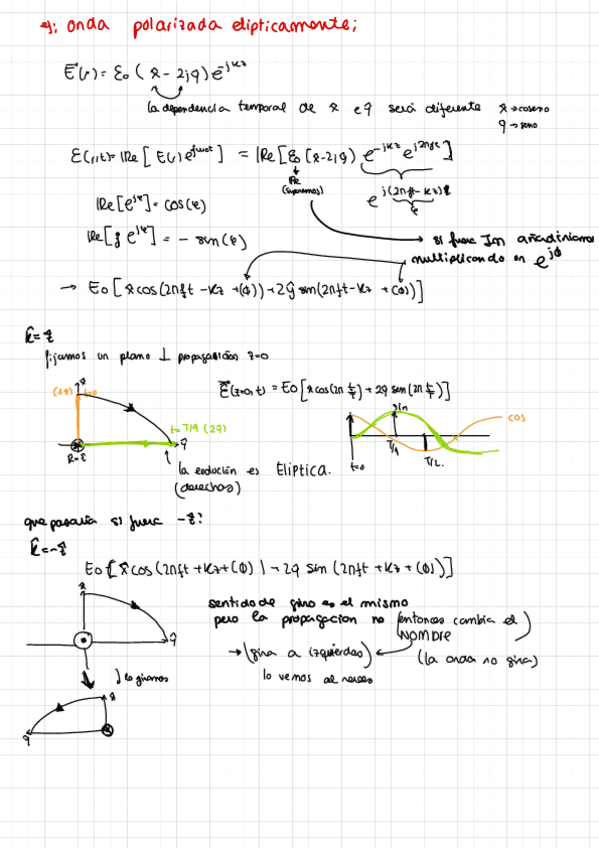 ej: onda polarizada elipticamente;
E(r) = E₀ (x̂ - 2jŷ) e^-jkz
la dependencia temporal de x̂ e ŷ será diferente x̂ → coseno
ŷ → seno
E(r,t) = Re[E(r) e^jwt] = Re[E₀ (x̂-2jŷ) e^-jkz e^j2πft]
Re
(suponemos)
e^j(2πft-kz)
φ
Re[e^jφ] = cos(φ)
Re[j e^jφ] = - sen(φ)
si fuera Im añadiriamos
multiplicando en e^jϕ
→ E₀ [x̂ cos(2πft - kz + (ϕ)) + 2ŷ sin(2πft - kz + (ϕ))]
k̂ = ẑ
fijamos un plano ⊥ propagación z=0
E(z=0,t) = E₀ [x̂ cos(2π t/T) + 2ŷ sen(2π t/T)]
(1x̂) t=0
x̂
t = T/4 (2ŷ)
ŷ
k̂=ẑ
sin
cos
t=0
T/4
T/2.
la evolución es Eliptica.
(derechas)
que pasaría si fuera -ẑ?
k̂ = -ẑ
E₀ [x̂ cos(2πft + kz + (ϕ)) + 2ŷ sin (2πft + kz + (ϕ))]
x̂
ŷ
sentido de giro es el mismo
pero la propagacion no (entonces cambia el
NOMBRE)
→ (gira a izquierdas)
(la onda no gira)
lo vemos al reves
lo giramos
x̂
ŷ